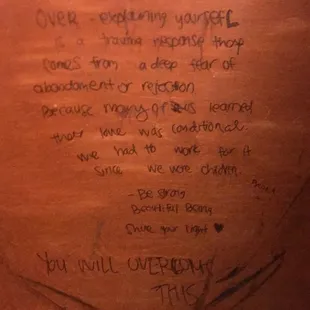 OVER - explaining yourself
is a trauma response thats
comes from a deep fear of
abandoment or rejection
Because many of us learned
that love was conditional.
we had to work for it
since we were children
- Be strong
Beautiful Being
Shine your light ♥
YOU WILL OVERCOME
THIS